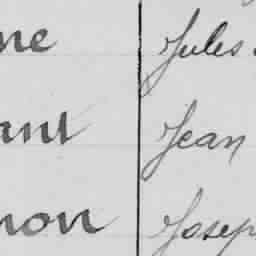 ne Jules
ant Jean
non Josep